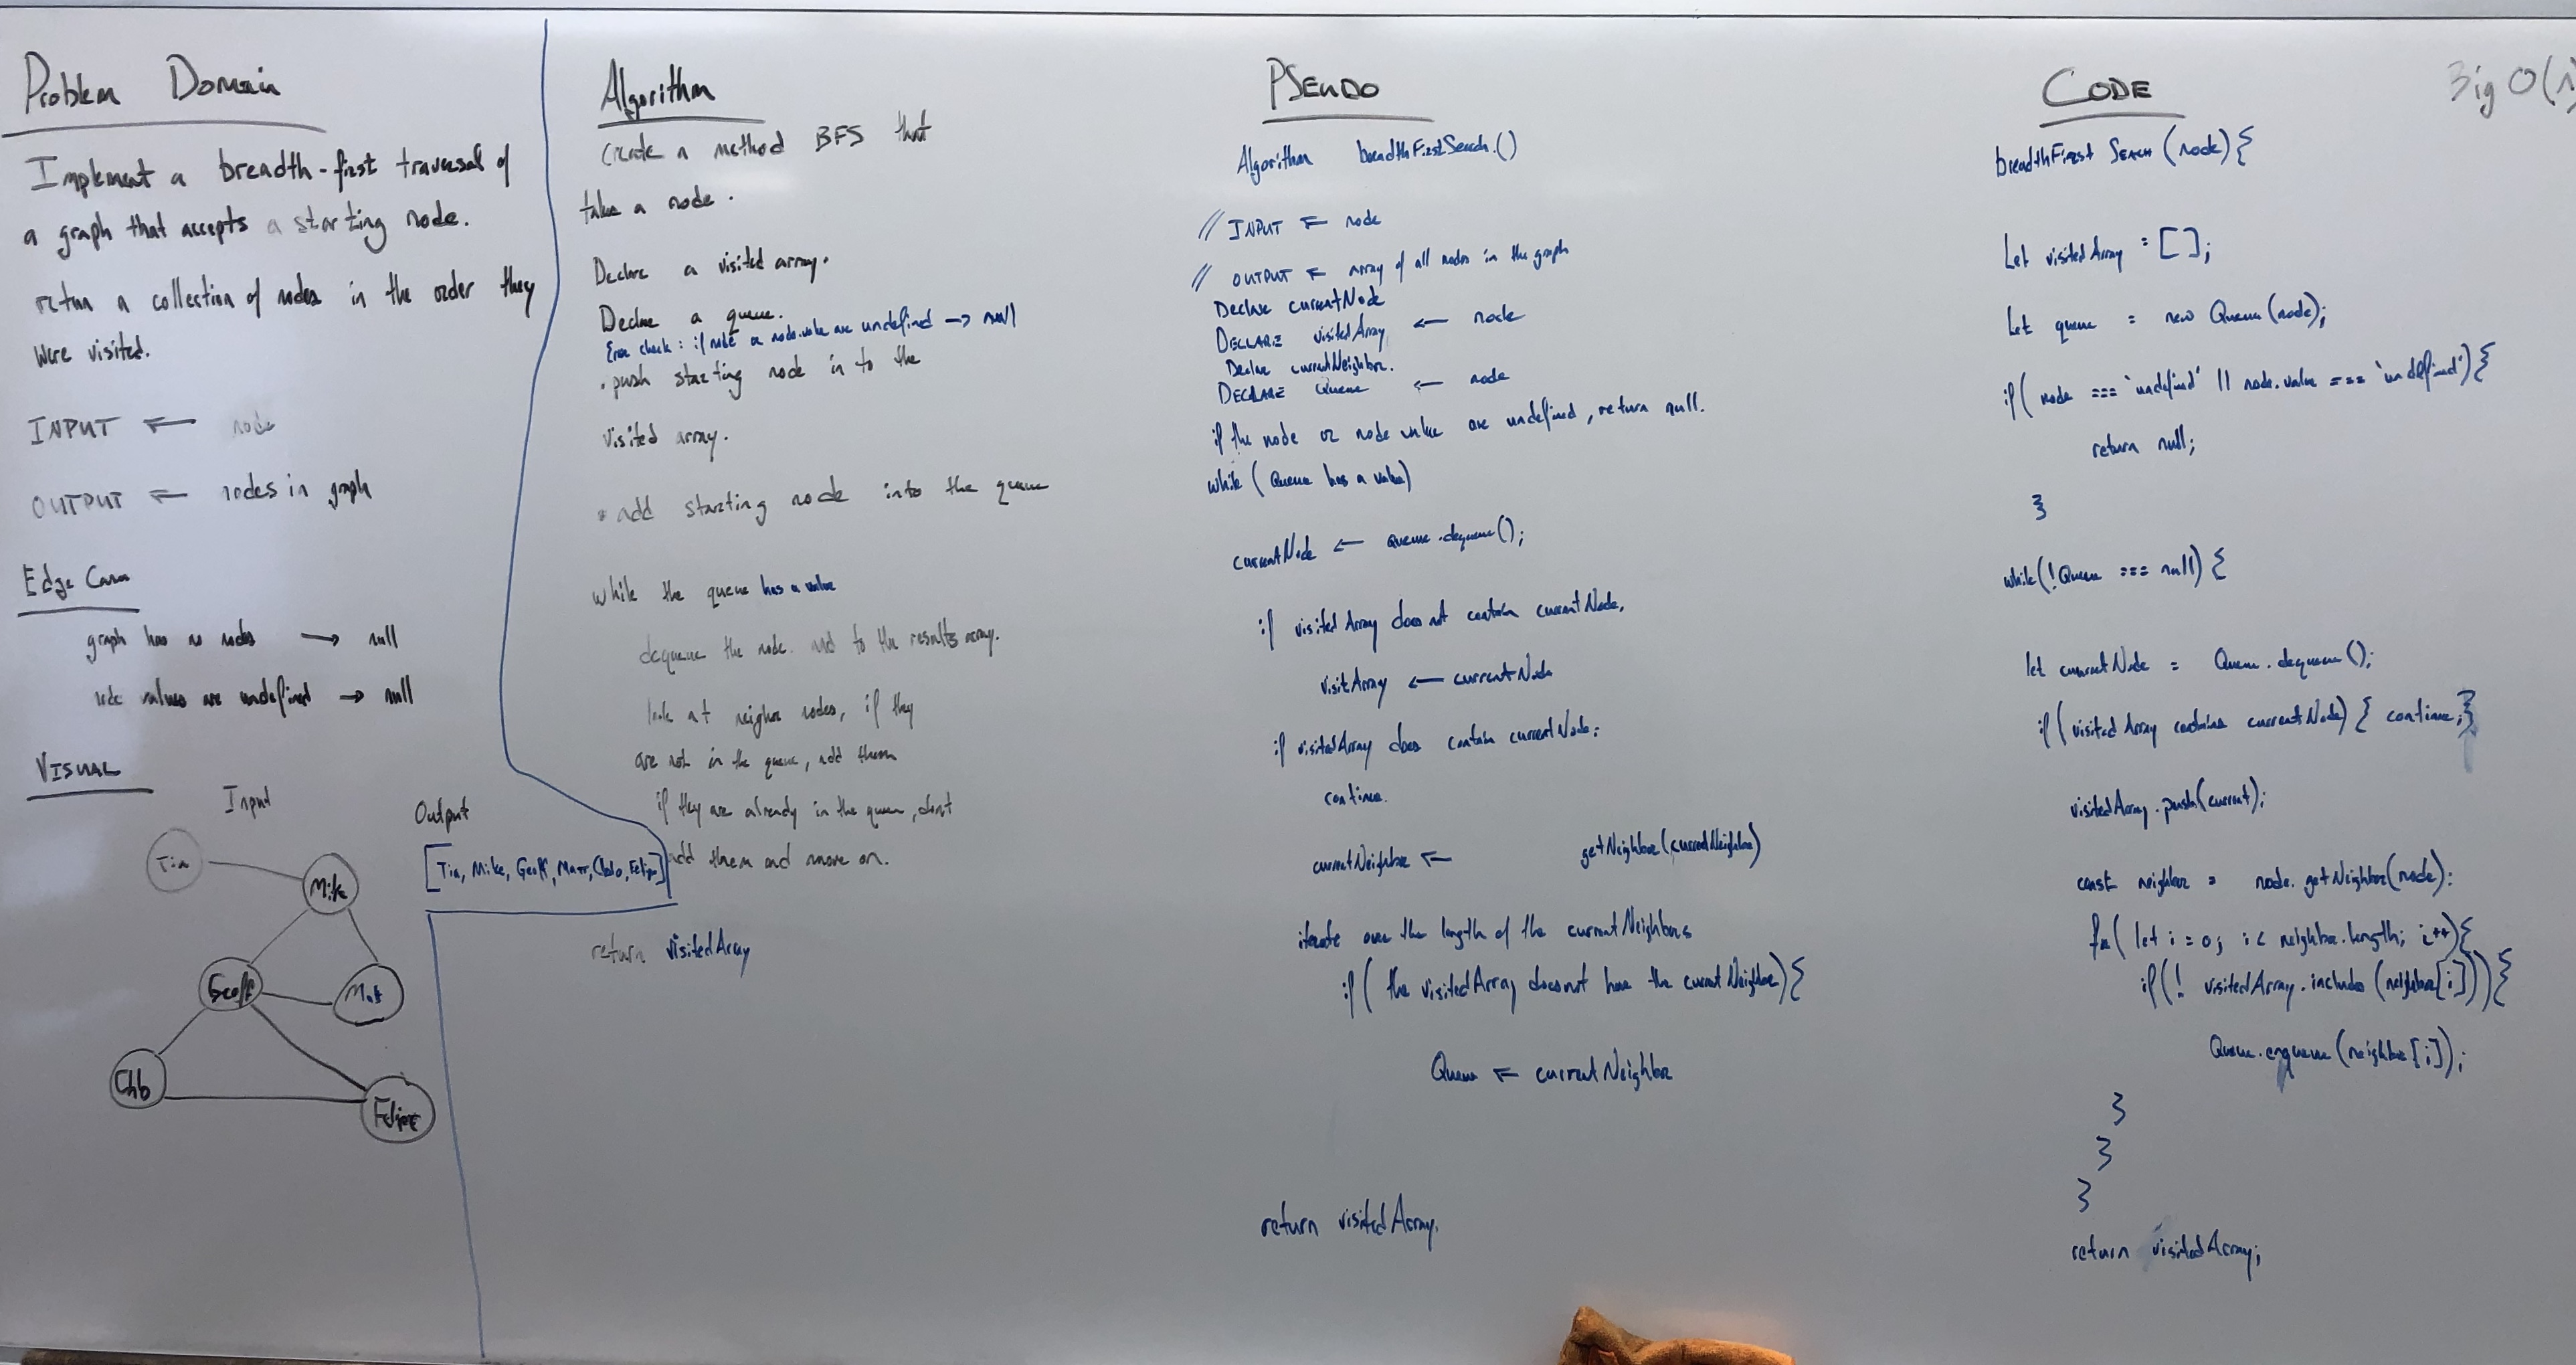 Problem Domain
Implement a breadth-first traversal of
a graph that accepts a starting node.
return a collection of nodes in the order they
were visited.
INPUT ← node
OUTPUT ← nodes in graph
Edge Case
graph has no nodes → null
node values are undefined → null
VISUAL
Input
Output
Tia
Mike
[Tia, Mike, Geoff, Matt, Chlo, Felipe]
Geoff
Mat
Chlo
Felipe
Algorithm
Create a method BFS that
take a node.
Declare a visited array.
Declare a queue.
Error check: if node or node.value are undefined → null
• push starting node in to the
visited array.
• add starting node into the queue
while the queue has a value
dequeue the node. add to the results array.
look at neighbor nodes, if they
are not in the queue, add them
if they are already in the queue, don't
add them and move on.
return visitedArray
PSEUDO
Algorithm breadthFirstSearch.()
// INPUT ← node
// OUTPUT ← array of all nodes in the graph
Declare currentNode
DECLARE visitedArray ← node
Declare currentNeighbor.
DECLARE Queue ← node
if the node or node value are undefined, return null.
while (Queue has a value)
currentNode ← Queue.dequeue();
if visitedArray does not contain currentNode.
visitArray ← currentNode
if visitedArray does contain currentNode:
continue.
currentNeighbor ← getNeighbor(currentNeighbor)
iterate over the length of the currentNeighbors
if( the visitedArray does not have the current Neighbor){
Queue ← currentNeighbor
return visitedArray.
CODE
Big O(n)
breadthFirst Search (node){
Let visitedArray = [];
Let queue = new Queue(node);
if( node === 'undefined' || node.value === 'undefined'){
return null;
}
while(!Queue === null) {
let currentNode = Queue.dequeue();
if( visited Array contains currentNode) { continue;}
visitedArray.push(current);
const neighbor = node.getNeighbor(node);
for( let i = 0; i < neighbor.length; i++){
if(! visitedArray.includes (neighbor[i])){
Queue.enqueue(neighbor[i]);
}
}
}
return visitedArray;